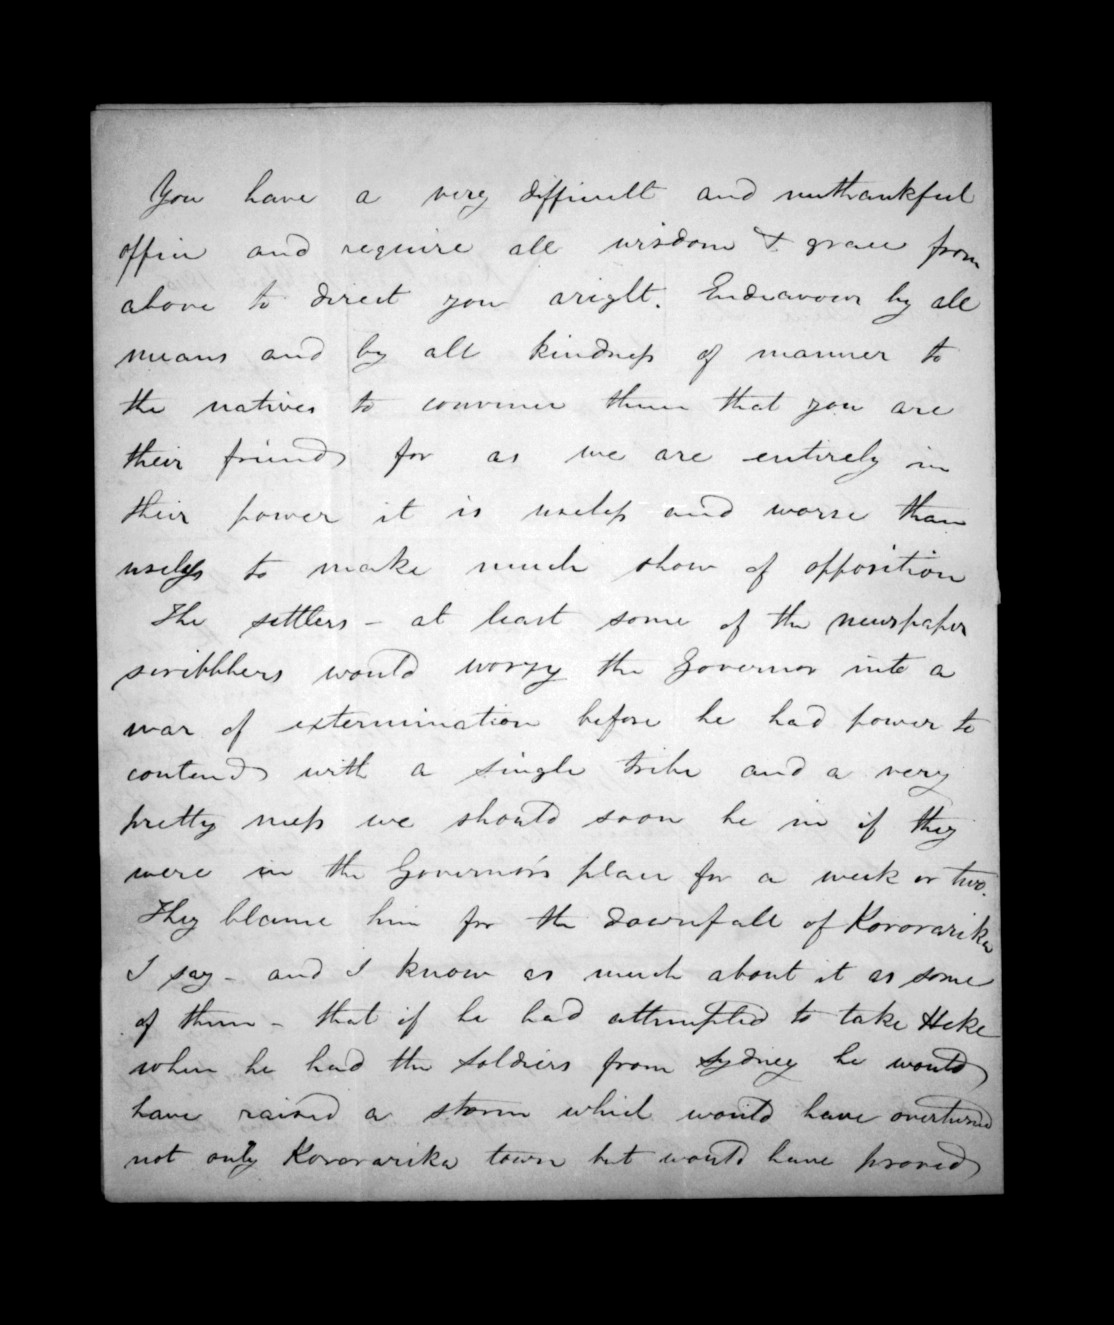 You have a very difficult and unthankful
office and require all wisdom & grace from
above to direct you aright. Endeavour by all
means and by all kindness of manner to
the natives to convince them that you are
their friend for as we are entirely in
their power it is useless and worse than
useless to make much show of opposition
The settlers - at least some of the newspaper
scribblers would worry the Governor into a
war of extermination before he had power to
contend with a single tribe and a very
pretty mess we should soon be in if they
were in the Governor's place for a week or two.
They blame him for the downfall of Kororarika
I say - and I know as much about it as some
of them - that if he had attempted to take Heke
when he had the soldiers from Sydney he would
have raised a storm which would have overturned
not only Kororarika town but would have proved